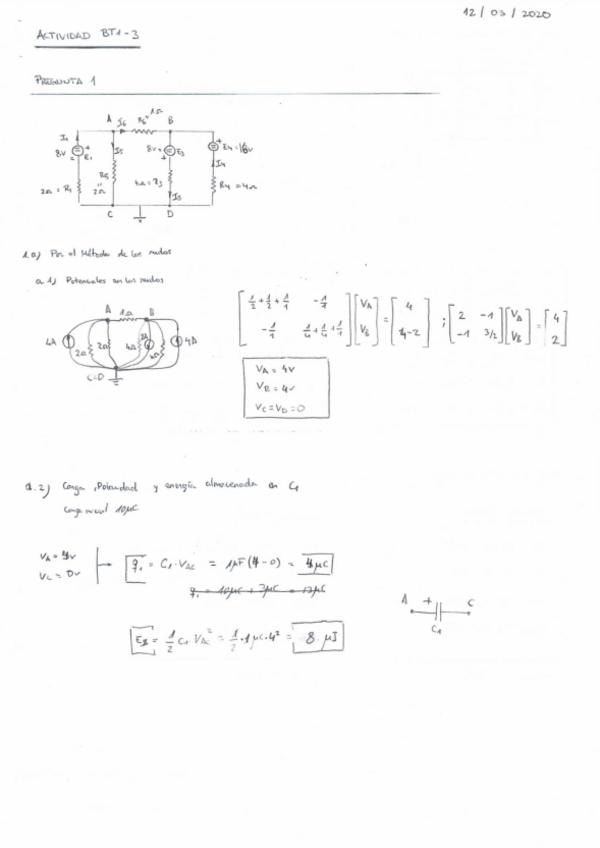 12/03/2020
ACTIVIDAD BT1-3
PREGUNTA 1
A I6 R6 1Ω B
I1 8V E1 I5 8V E3 E4=16V
2Ω=R1 R5 2Ω 4Ω=R3 I3 I4 R4=4Ω
C D
1.a) Por el Método de los nudos
a.1) Potenciales en los nudos
A 1Ω B
4A 2Ω 2Ω 4Ω 2A 4Ω 4A
C=D
[1/2+1/2+1/1 -1/1] [VA] = [4] ; [2 -1] [VA] = [4]
[-1/1 1/4+1/4+1/1] [VB] [4-2] [-1 3/2] [VB] [2]
VA = 4V
VB = 4V
VC = VD = 0
a.2) Carga, Polaridad y energía almacenada en C1
Carga inicial 10μC
VA = 4V
VC = 0V
q1 = C1·VAC = 1μF(4-0) = 4μC
A + C
C1
= 1/2 C1 VAC² = 1/2·1μC·4² = 8 μJ